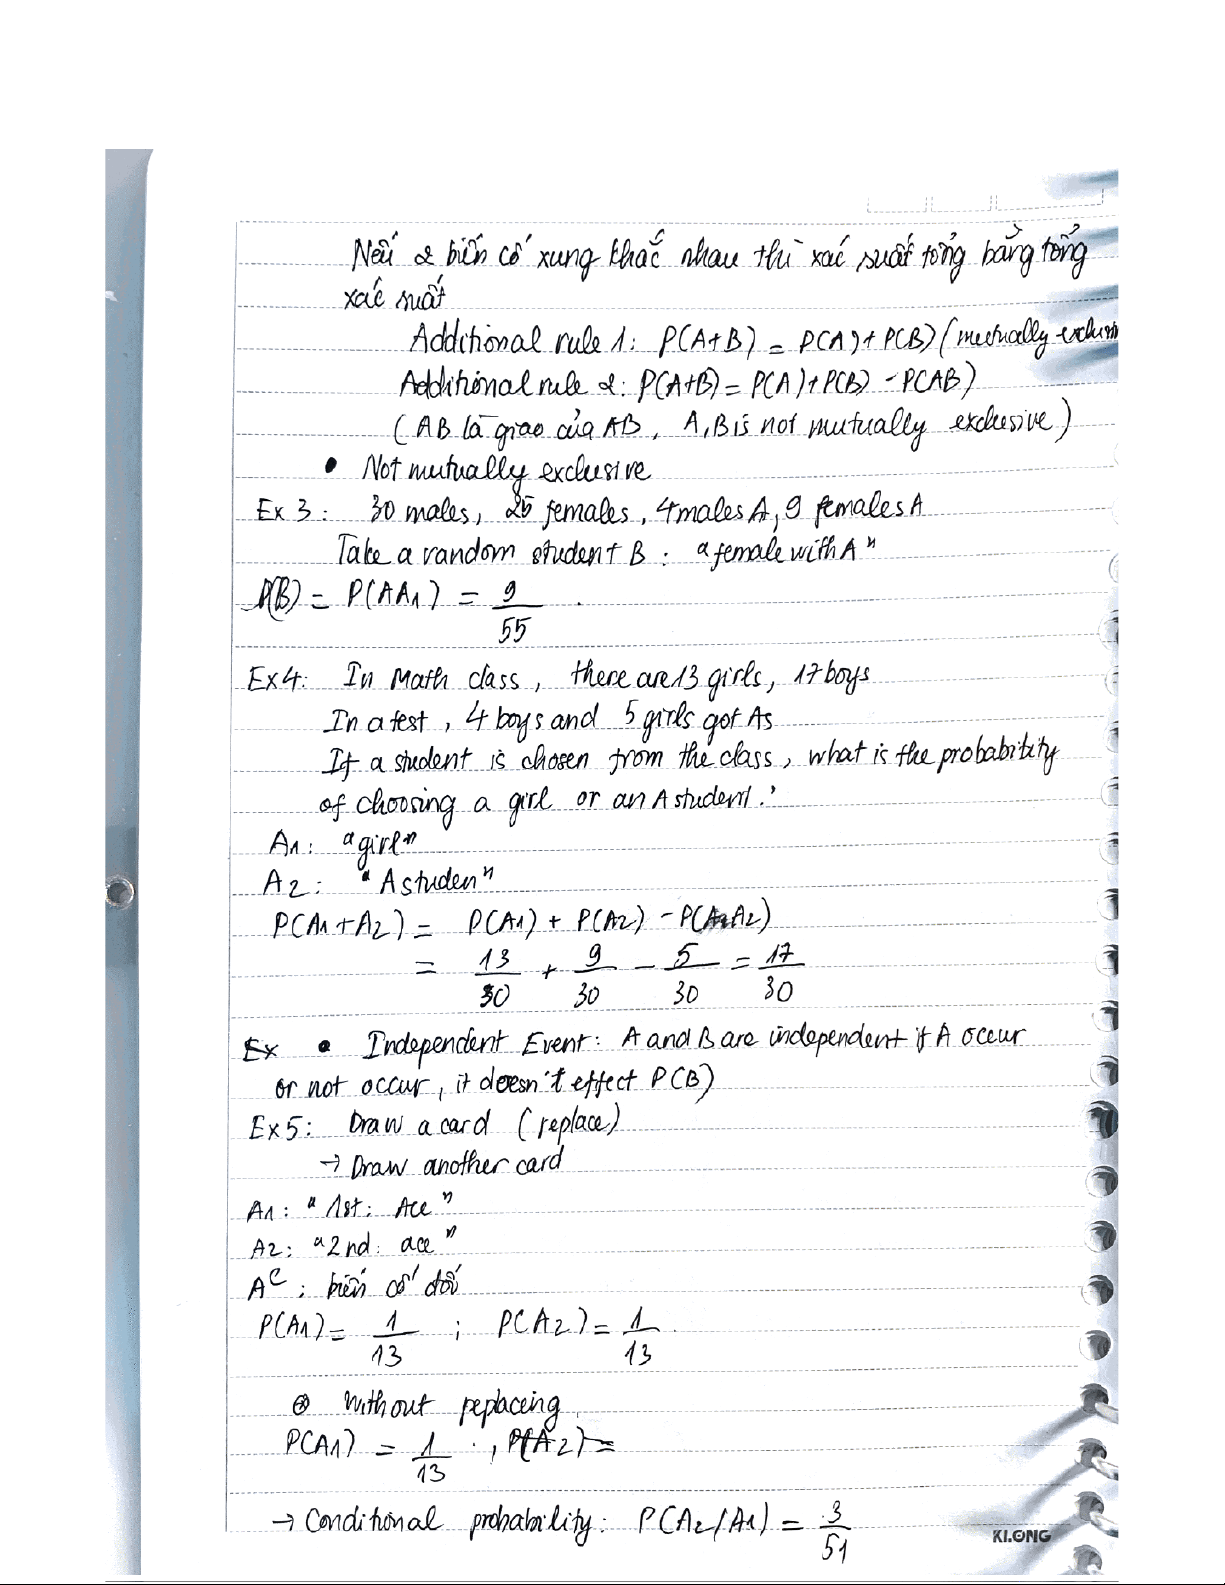 Nếu 2 biến cố xung khắc nhau thì xác suất tổng bằng tổng
xác suất
Additional rule 1: P(A+B) = P(A)+ P(B) (mutually exclusiv
Additional rule 2: P(A+B) = P(A)+P(B) - P(AB)
(AB là giao của AB, A,B is not mutually exclusive)
• Not mutually exclusive
Ex 3: 30 males, 25 females, 4 males A, 9 females A
Take a random student B: "female with A"
P(B) = P(AA1) = 9/55
Ex4: In Math class, there are 13 girls, 17 boys
In a test, 4 boys and 5 girls got As
If a student is chosen from the class, what is the probability
of choosing a girl or an A student.
A1: "girl"
A2: "A studen"
P(A1+A2) = P(A1) + P(A2) - P(A1A2)
= 13/30 + 9/30 - 5/30 = 17/30
Ex • Independent Event: A and B are independent if A occur
or not occur, it doesn't effect P(B)
Ex5: Draw a card (replace)
→ Draw another card
A1: "1st: Ace"
A2: "2nd: ace"
A^C: biến cố đối
P(A1) = 1/13 ; P(A2) = 1/13
⊕ Without peplaceing
P(A1) = 1/13 , P(A2) =
→ Conditional probability: P(A2/A1) = 3/51
KLONG